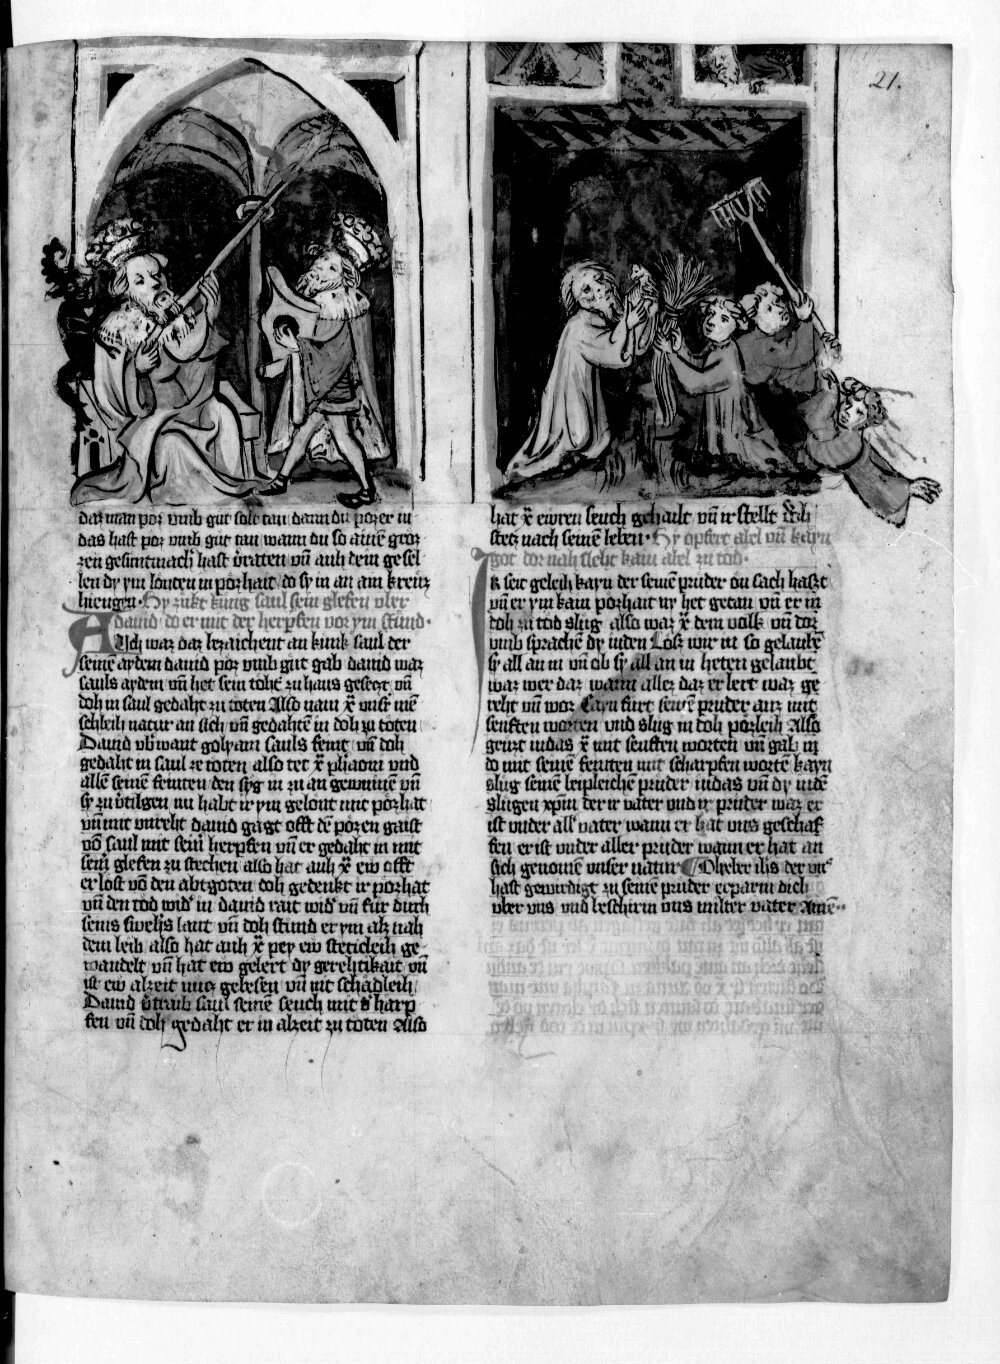 21.
daz man pöz vmb gut solt tun dann du pözer iu
das hast pöz vmb gut tan wann du so ainē groz
zen gesuntmach hast vratten vn̄ auh dein gesel
len dy ym louten in pözhait do sy in an am kreutz
hiengen · Hy zukt kung saul sein glefen vber
dauid do er mit der herpfen vor ym stund ·
Auch waz daz bezaichent an kunk saul der
seinē aydem dauid pöz vmb gut gab dauid waz
sauls aydem vn̄ het sein toht' zu haus gesetzt vn̄
doh in saul gedaht zu toten Also nam x̄ vnsir mē
schleih natur an sich vn̄ gedahtē in doh zu toten
Dauid vb'want golyam sauls feint vn̄ doh
gedaht in saul ze toten also tet x̄ phaoni vnd
allē seinē feinten den syg in zu an gewinnē vn̄
sy zu v'tilgen nu habt ir ym gelont mit pözhat
vn̄ mit vnreht dauid gagt offt dē pözen gaist
vō saul mit sein' herpfen vn̄ er gedaht in mit
sein' glefen zu stechen also hat auh x̄ ew offt
erlost vō den abtgoten doh gedenkt ir pözhat
vn̄ den tod wid' in dauid rait wid' vn̄ fur durh
seins swehs laut vn̄ doh stund er ym alz nah
dem leib also hat auh x̄ pey ew steticleih ge
wandelt vn̄ hat ew gelert dy gerehtikait vn̄
ist ew alzeit nutz gebesen vn̄ nit schadleih
Dauid v'traib saul seinē seuch mit d' harp
fen vn̄ doh gedaht er in alzeit zu toten Also
hat x̄ ewren seuch gehailt vn̄ ir stellt
stetz nach seinē leben · Hy opfert abel vn̄ kayn
got dor nah sleht kain abel zu tod ·
Ik seit geleih kayn der seinē pruder on sach haszt
vn̄ er ym kain pözhait ny het getan vn̄ er in
doh zu tod slug also waz x̄ dem volk vn̄ dor
vmb sprachē dy iuden Losz wir in so gelaubē
sy all an in vn̄ ob sy all an in heten gelaubt
waz wer daz wann allez daz er lert waz ge
reht vn̄ wor Cayn furt seinē pruder auz mit
senften worten vnd slug in doh pözleih Also
gruzt iudas x̄ mit senften worten vn̄ gab in
do mit seinē feinten mit scharpfen wortē kayn
slug seinē leipleichē pruder iudas vn̄ dy iudē
slugen xp̄m der ir vater vnd ir pruder waz er
ist vnder all' vater wann er hat vns geschaf
fen er ist vnder aller pruder wann er hat an
sich genomē vnser natur O lieber ihs der vns
hast gewirdigt zu seinē pruder erparm dich
vber vns vnd beschirm vns milter vater Amē ··